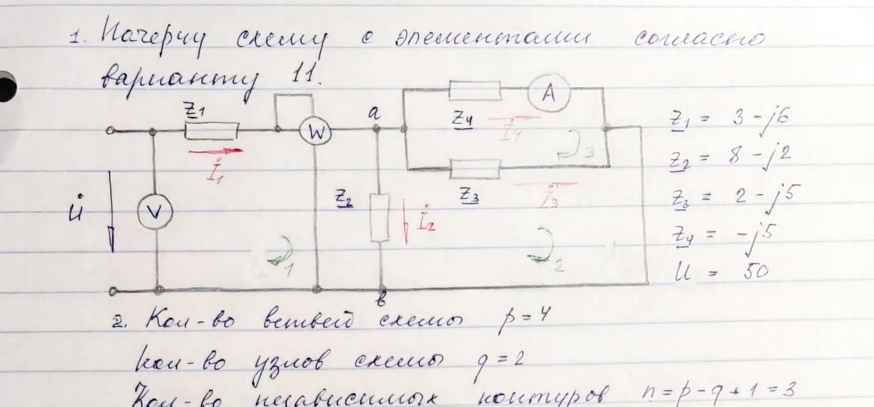 1. Начерчу схему с элементами согласно
варианту 11.
Z1
W
a
Z4
A
İ4
3
İ1
Z3
İ3
U̇
V
Z2
İ2
1
2
в
Z1 = 3 - j6
Z2 = 8 - j2
Z3 = 2 - j5
Z4 = -j5
U = 50
2. Кол-во ветвей схемы p=4
Кол-во узлов схемы q=2
Кол-во независимых контуров n=p-q+1=3